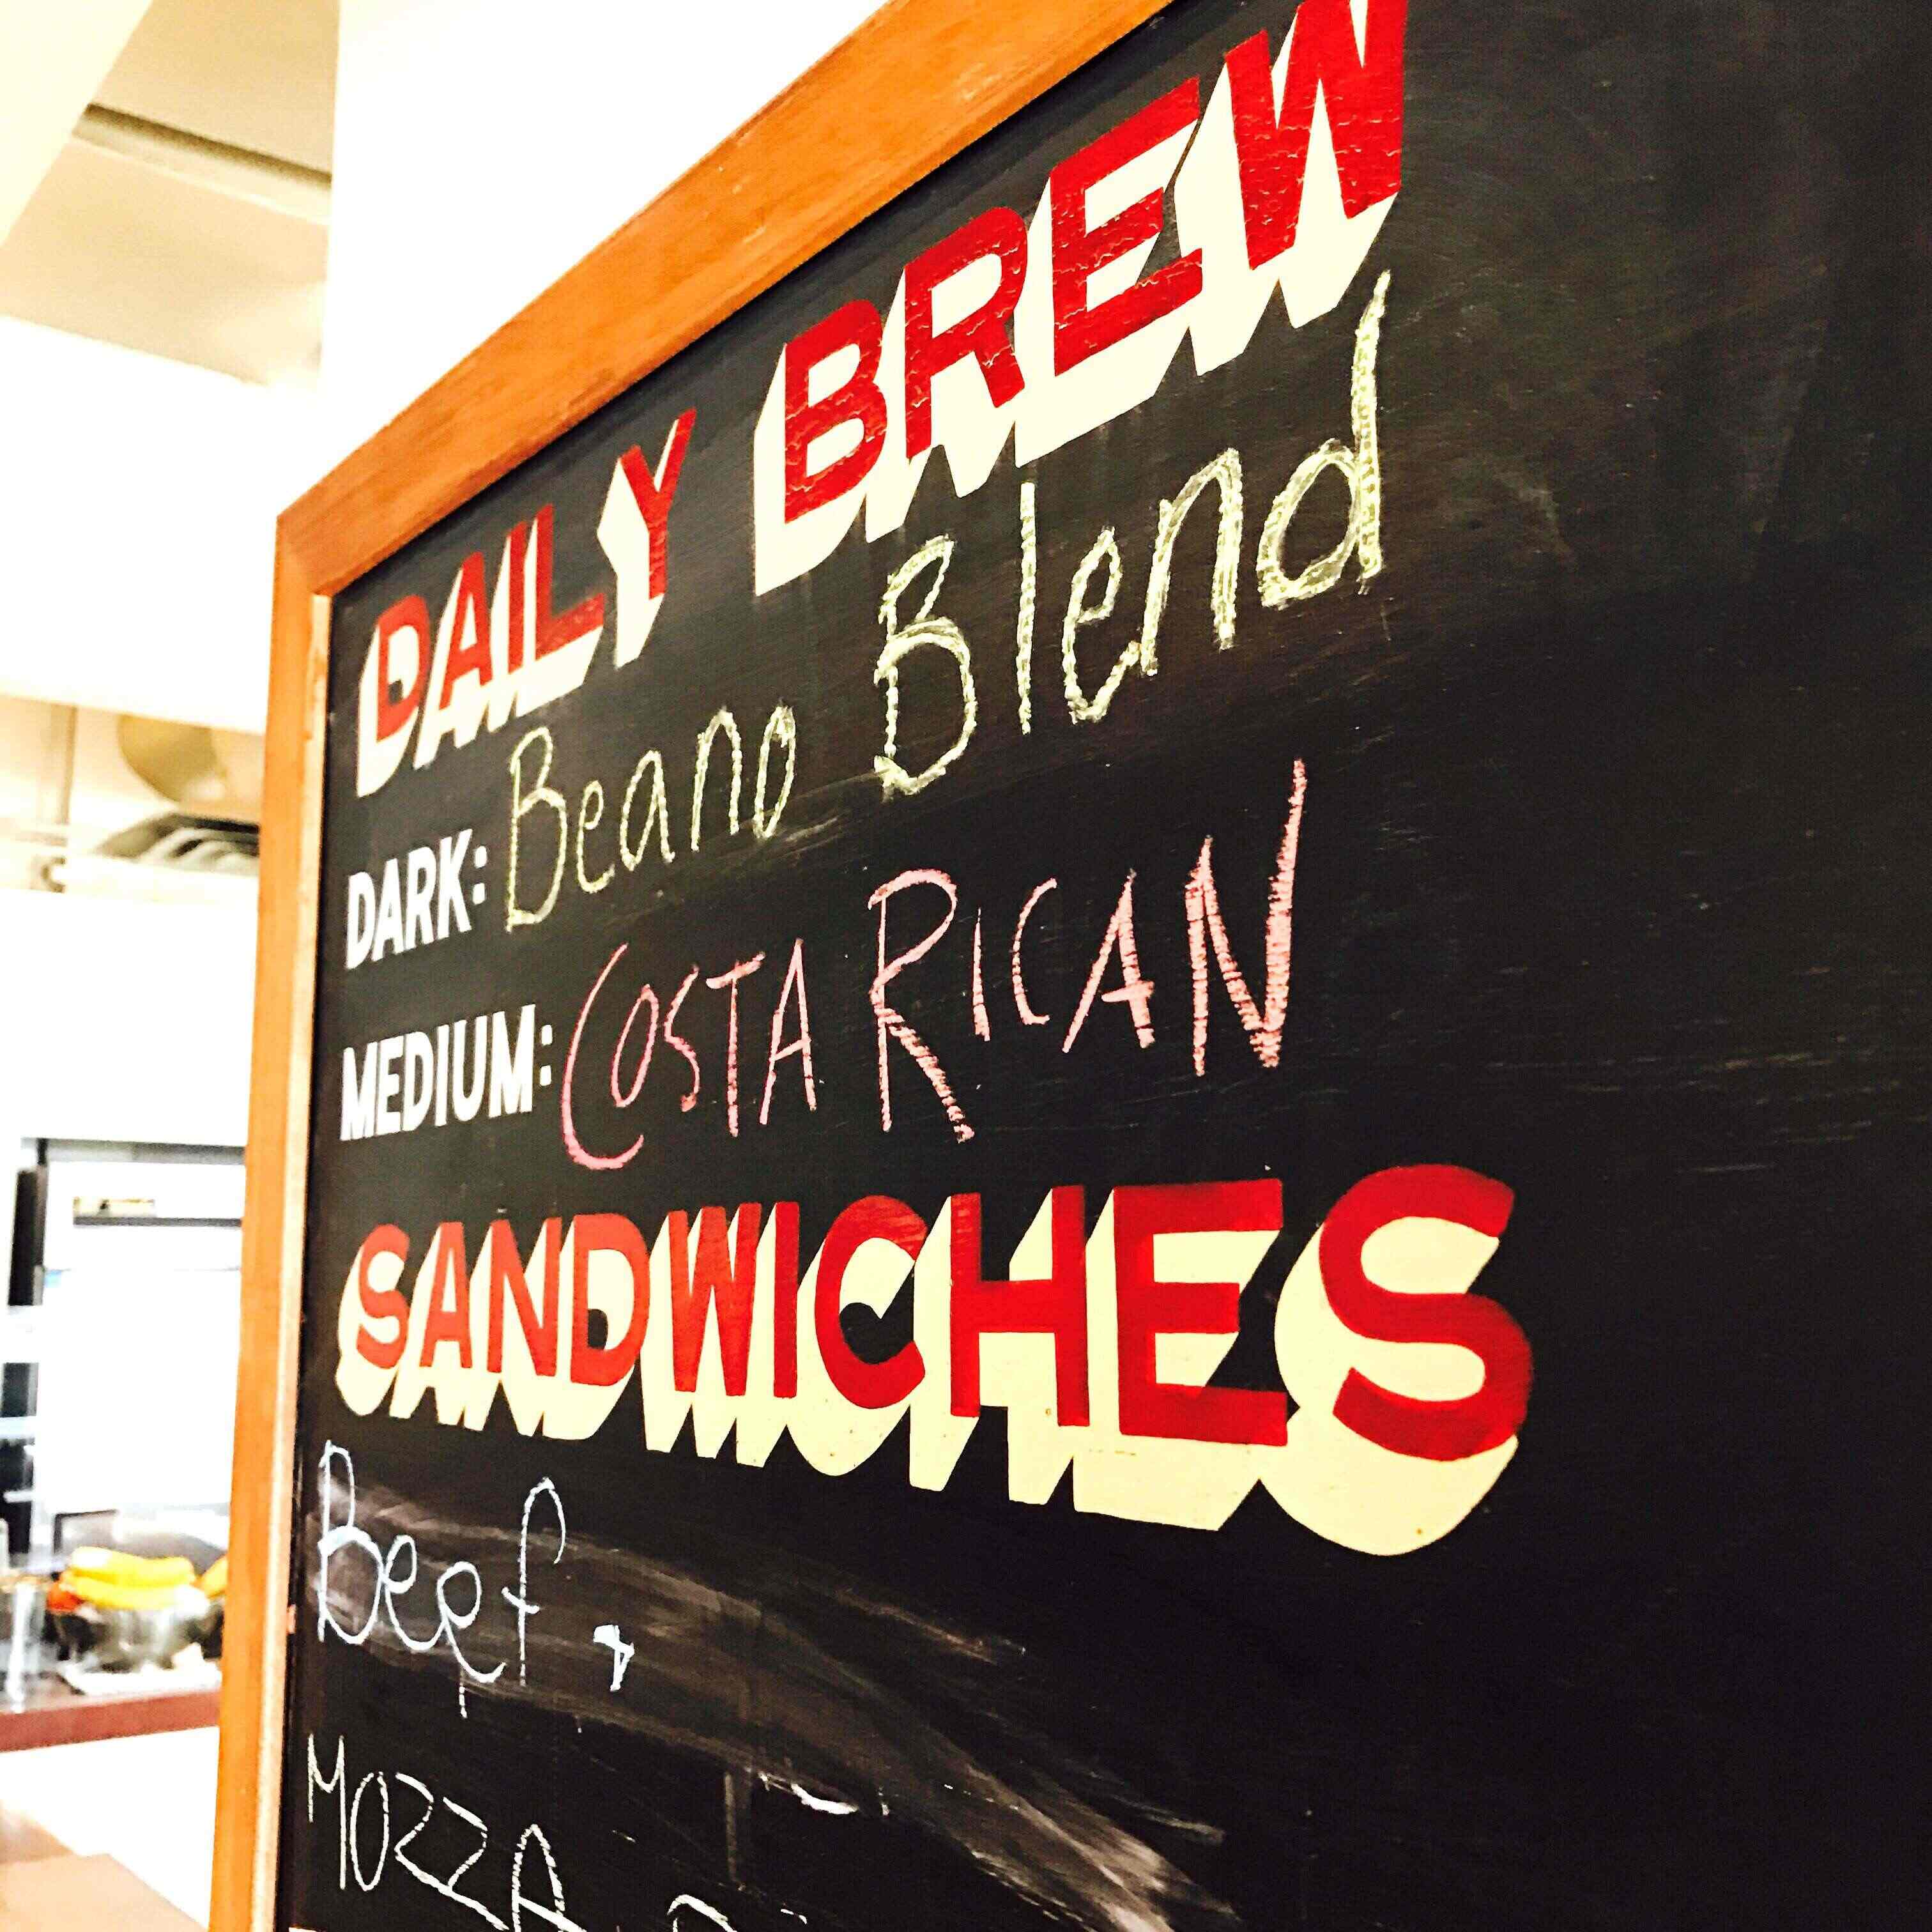 DAILY BREW
DARK: Beano Blend
MEDIUM: COSTA RICAN
SANDWICHES
Beef,
MOZZA